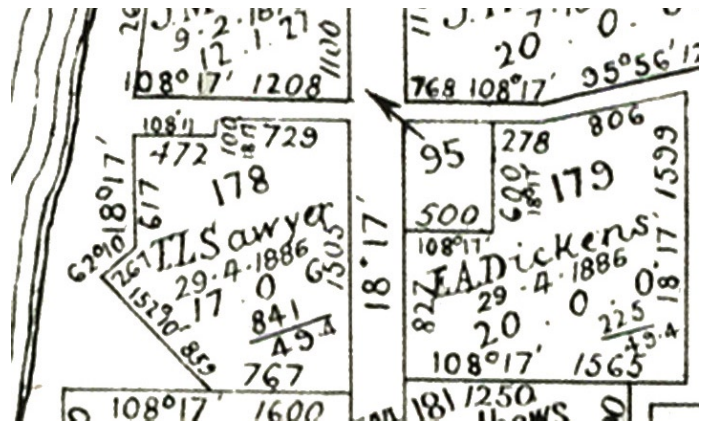 9.2.18
12.1.27
1100
108°17' 1208
20.0.
768 108°17'
95°56'
108°11
472
100
18°17
729
178
18°17'
617
62°10
267
T.L Sawyer
29.4.1886
17 0
1505
152°10' 859
841
49.4
767
18°17'
95
500
108°17'
278
806
600
18°17
179
1599
E.A Dickens
29.4.1886
20.0.0
827
18°17
225
49.4
108°17' 1565
108°17' 1600
181 1250